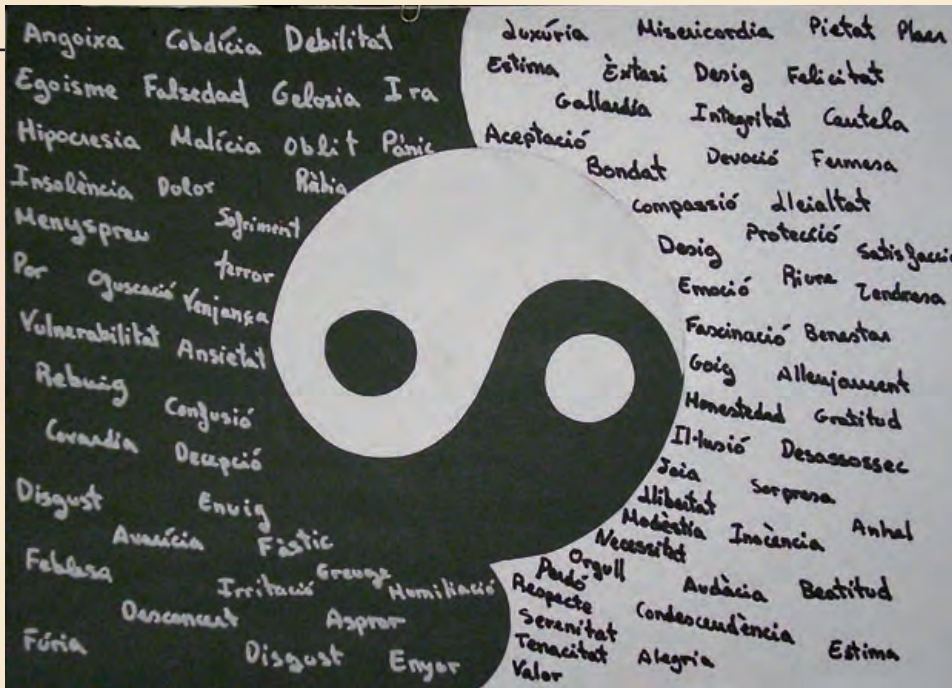 Angoixa Cobdícia Debilitat
Egoisme Falsedad Gelosia Ira
Hipocresia Malícia Oblit Pànic
Insolència Dolor Ràbia
Menyspreu Sofriment
terror
Por Ofuscació Venjança
Vulnerabilitat Ansietat
Rebuig
Confusió
Covardia Decepció
Disgust Enuig
Avarícia Fàstic
Feblesa Irritació Greuge Humiliació
Desconcert Aspror
Fúria Disgust Enyor
Luxúria Misericordia Pietat Plaer
Estima Èxtasi Desig Felicitat
Gallardía Integritat Cautela
Aceptació
Bondat Devoció Fermesa
Compassió Lleialtat
Desig Protecció Satisfacció
Emoció Riure Tendresa
Fascinació Benestar
Goig Alleujament
Honestedad Gratitud
Il·lusió Desassossec
Joia Sorpresa
Llibertat Anhel
Modèstia Inocència
Necessitat
Orgull Audàcia Beatitud
Perdó
Respecte Condescendència
Serenitat Estima
Tenacitat Alegria
Valor